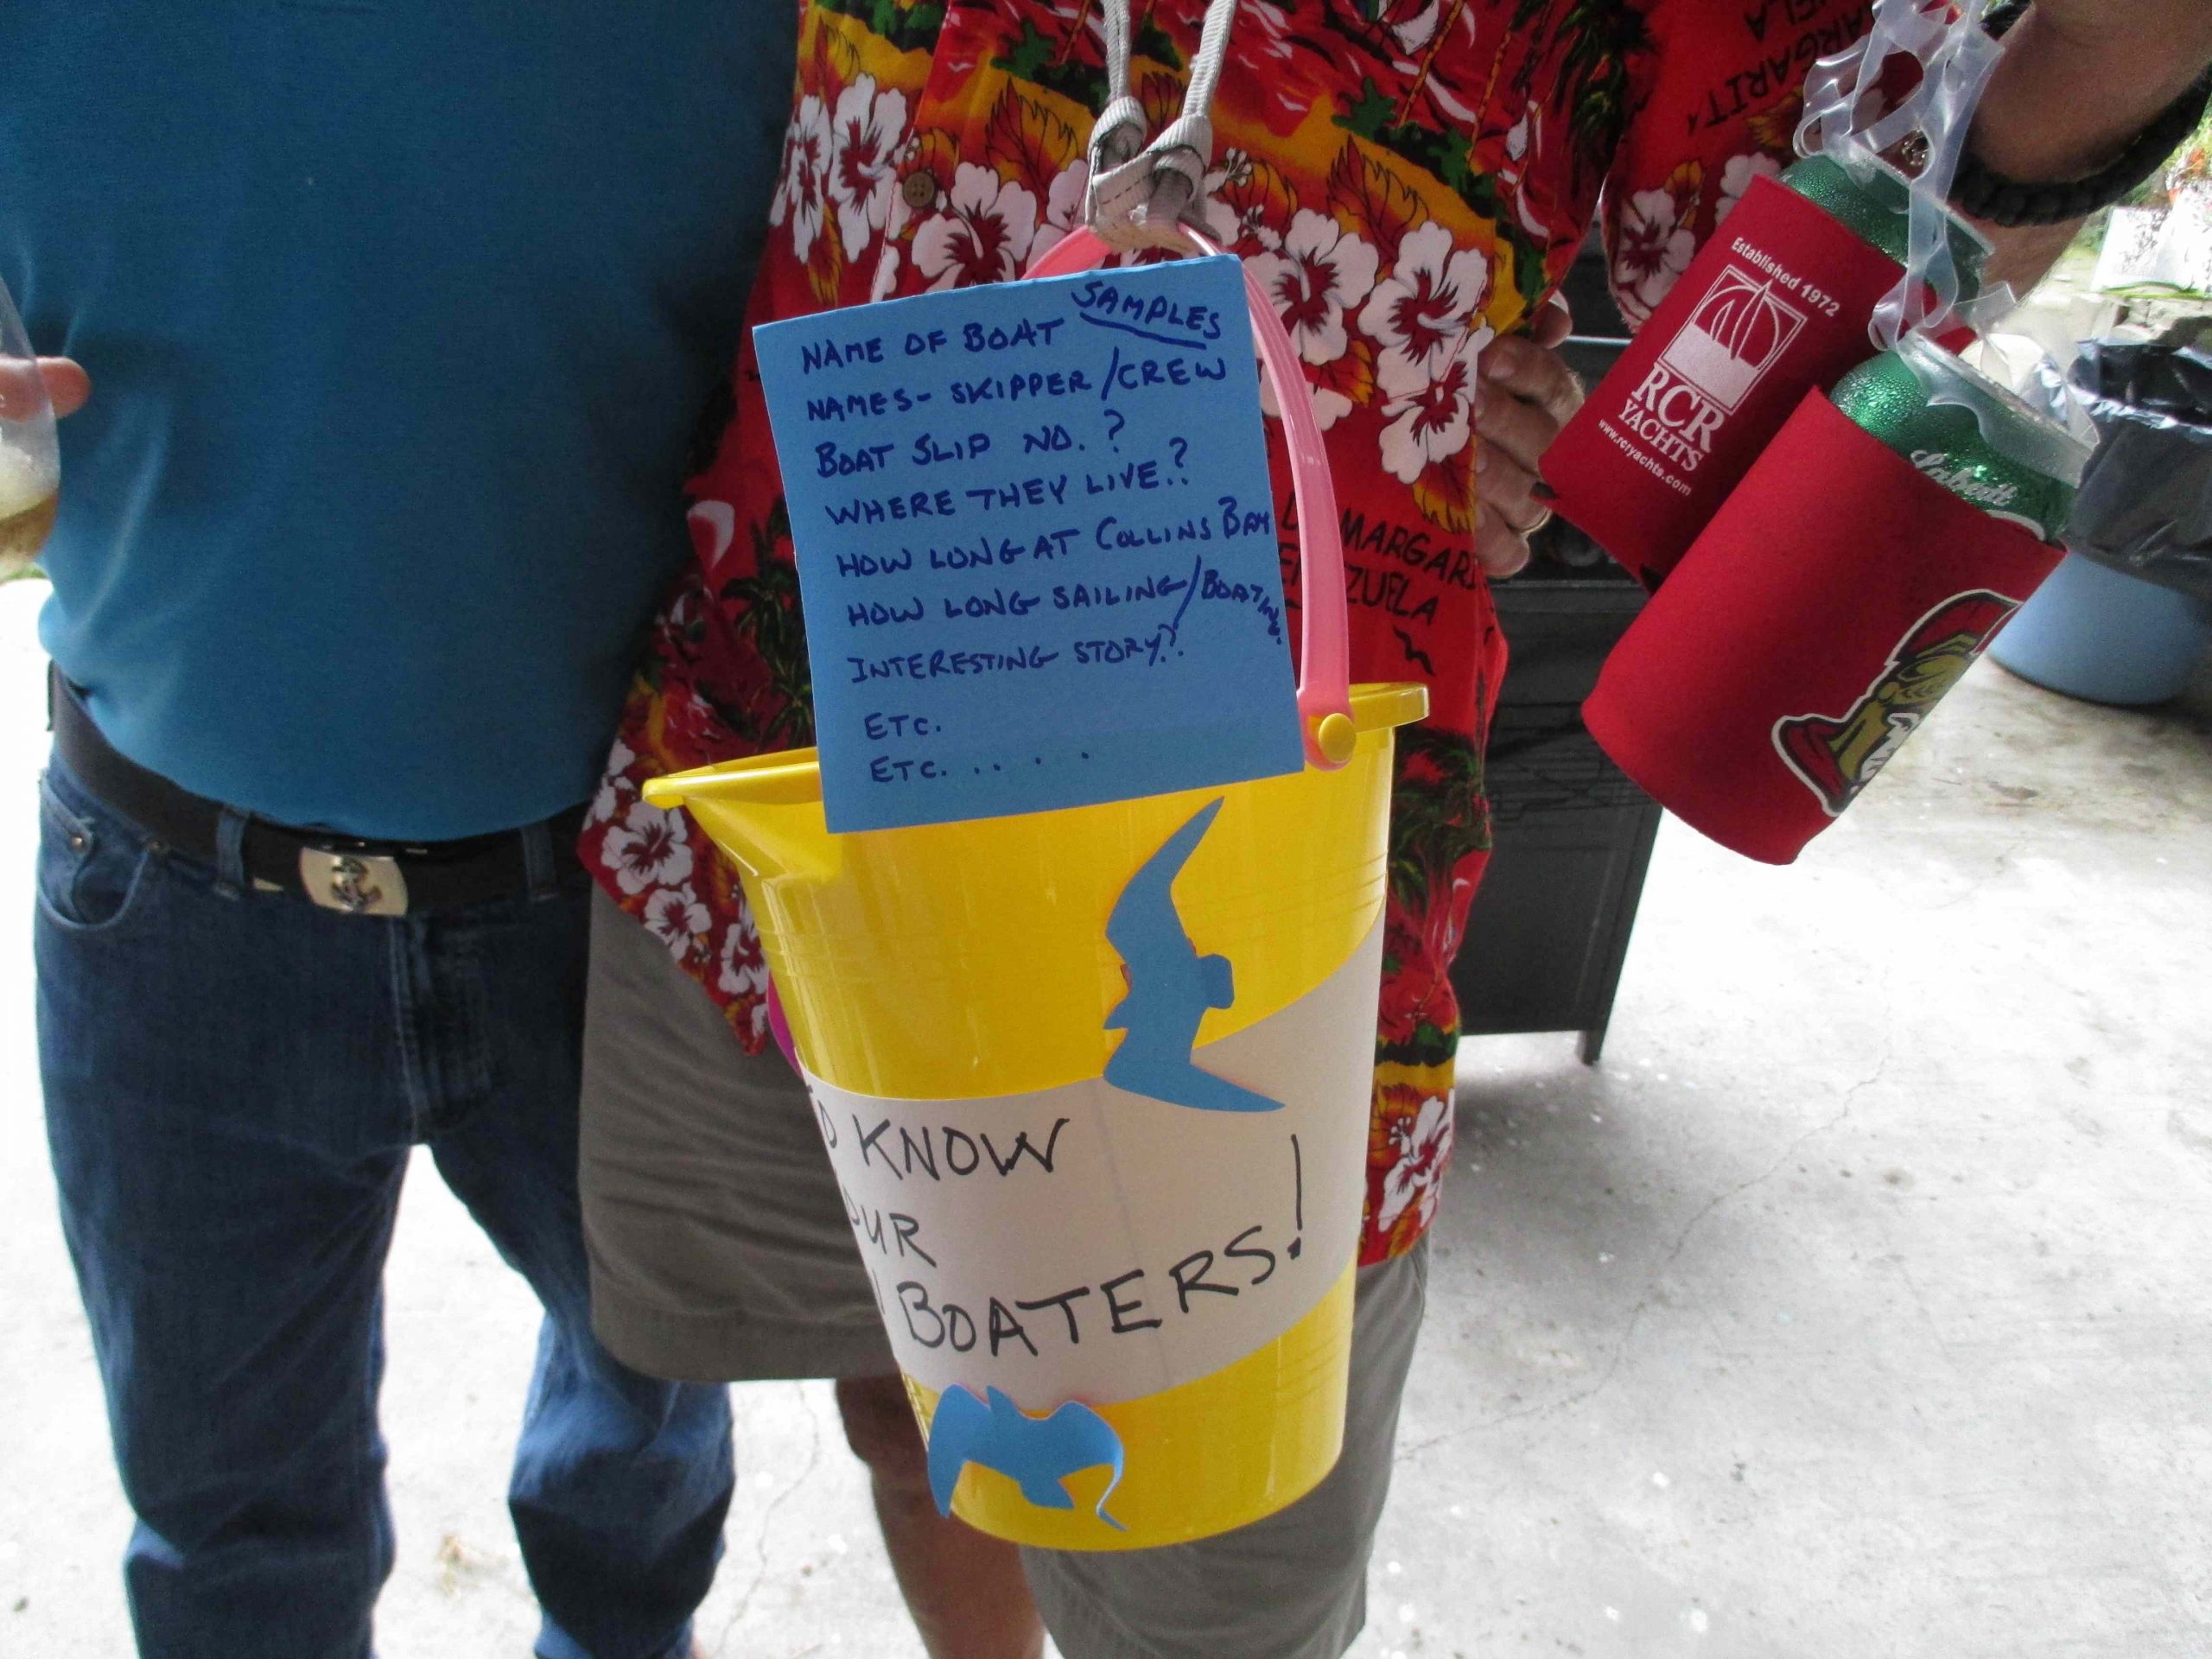 SAMPLES
NAME OF BOAT
NAMES- SKIPPER/CREW
BOAT SLIP NO. ?
WHERE THEY LIVE.?
HOW LONG AT COLLINS BAY
HOW LONG SAILING/BOATING.
INTERESTING STORY.?
ETC.
ETC. . . . .
KNOW
BOATERS!
Established 1972
RCR
YACHTS
www.rcryachts.com
Labatt
MARGARIT